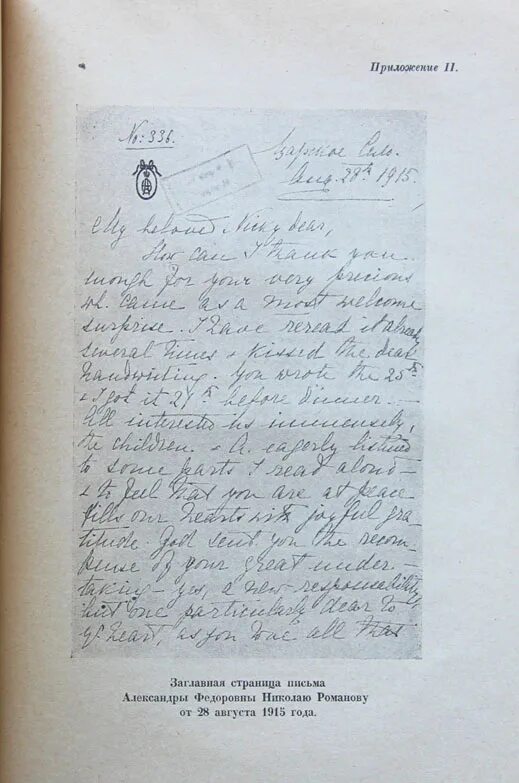 Приложение II.
No: 336.
Царское Село.
Aug. 28th 1915.
My beloved Nicky dear,
How can I thank you
enough for your very precious
wh. came as a most welcome
surprise. I have reread it already
several times & kissed the dear
handwriting. You wrote the 25th
& I got it 27th before dinner. —
All interested us immensely,
the children. & A. eagerly listened
to some parts I read aloud —
& to feel that you are at peace
fills our hearts with joyful gra-
titude. God send you the recom-
pense of your great under-
taking — yes, a new responsibility,
but one particularly dear to
yr. heart, as you love all that
Заглавная страница письма
Александры Федоровны Николаю Романову
от 28 августа 1915 года.